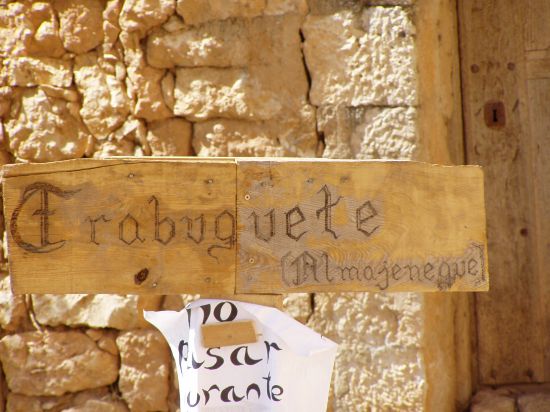 Trabuquete
(Almajeneque)
no
pasar
durante